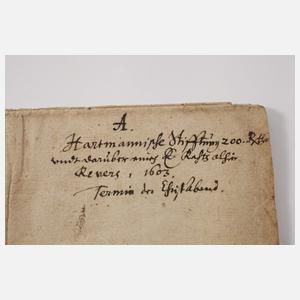 A.
Hartmannische Stifftung 200.
undt darüber eines E. Raths alhie
Revers, 1603.
Termin der Christabend.